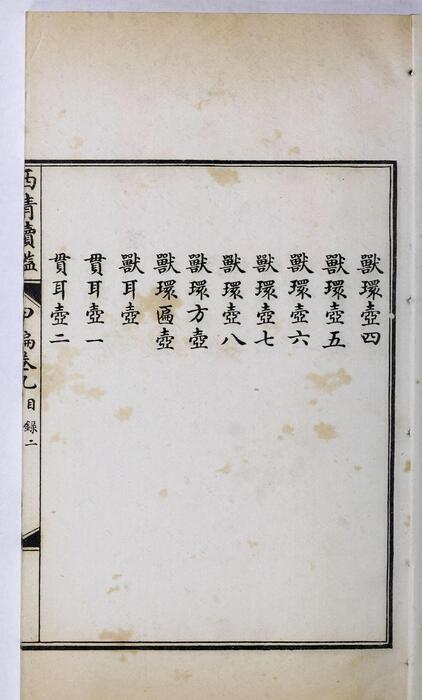 獸環壺四
獸環壺五
獸環壺六
獸環壺七
獸環壺八
獸環方壺
獸環匾壺
獸耳壺
貫耳壺一
貫耳壺二
西清續鑑
目錄二